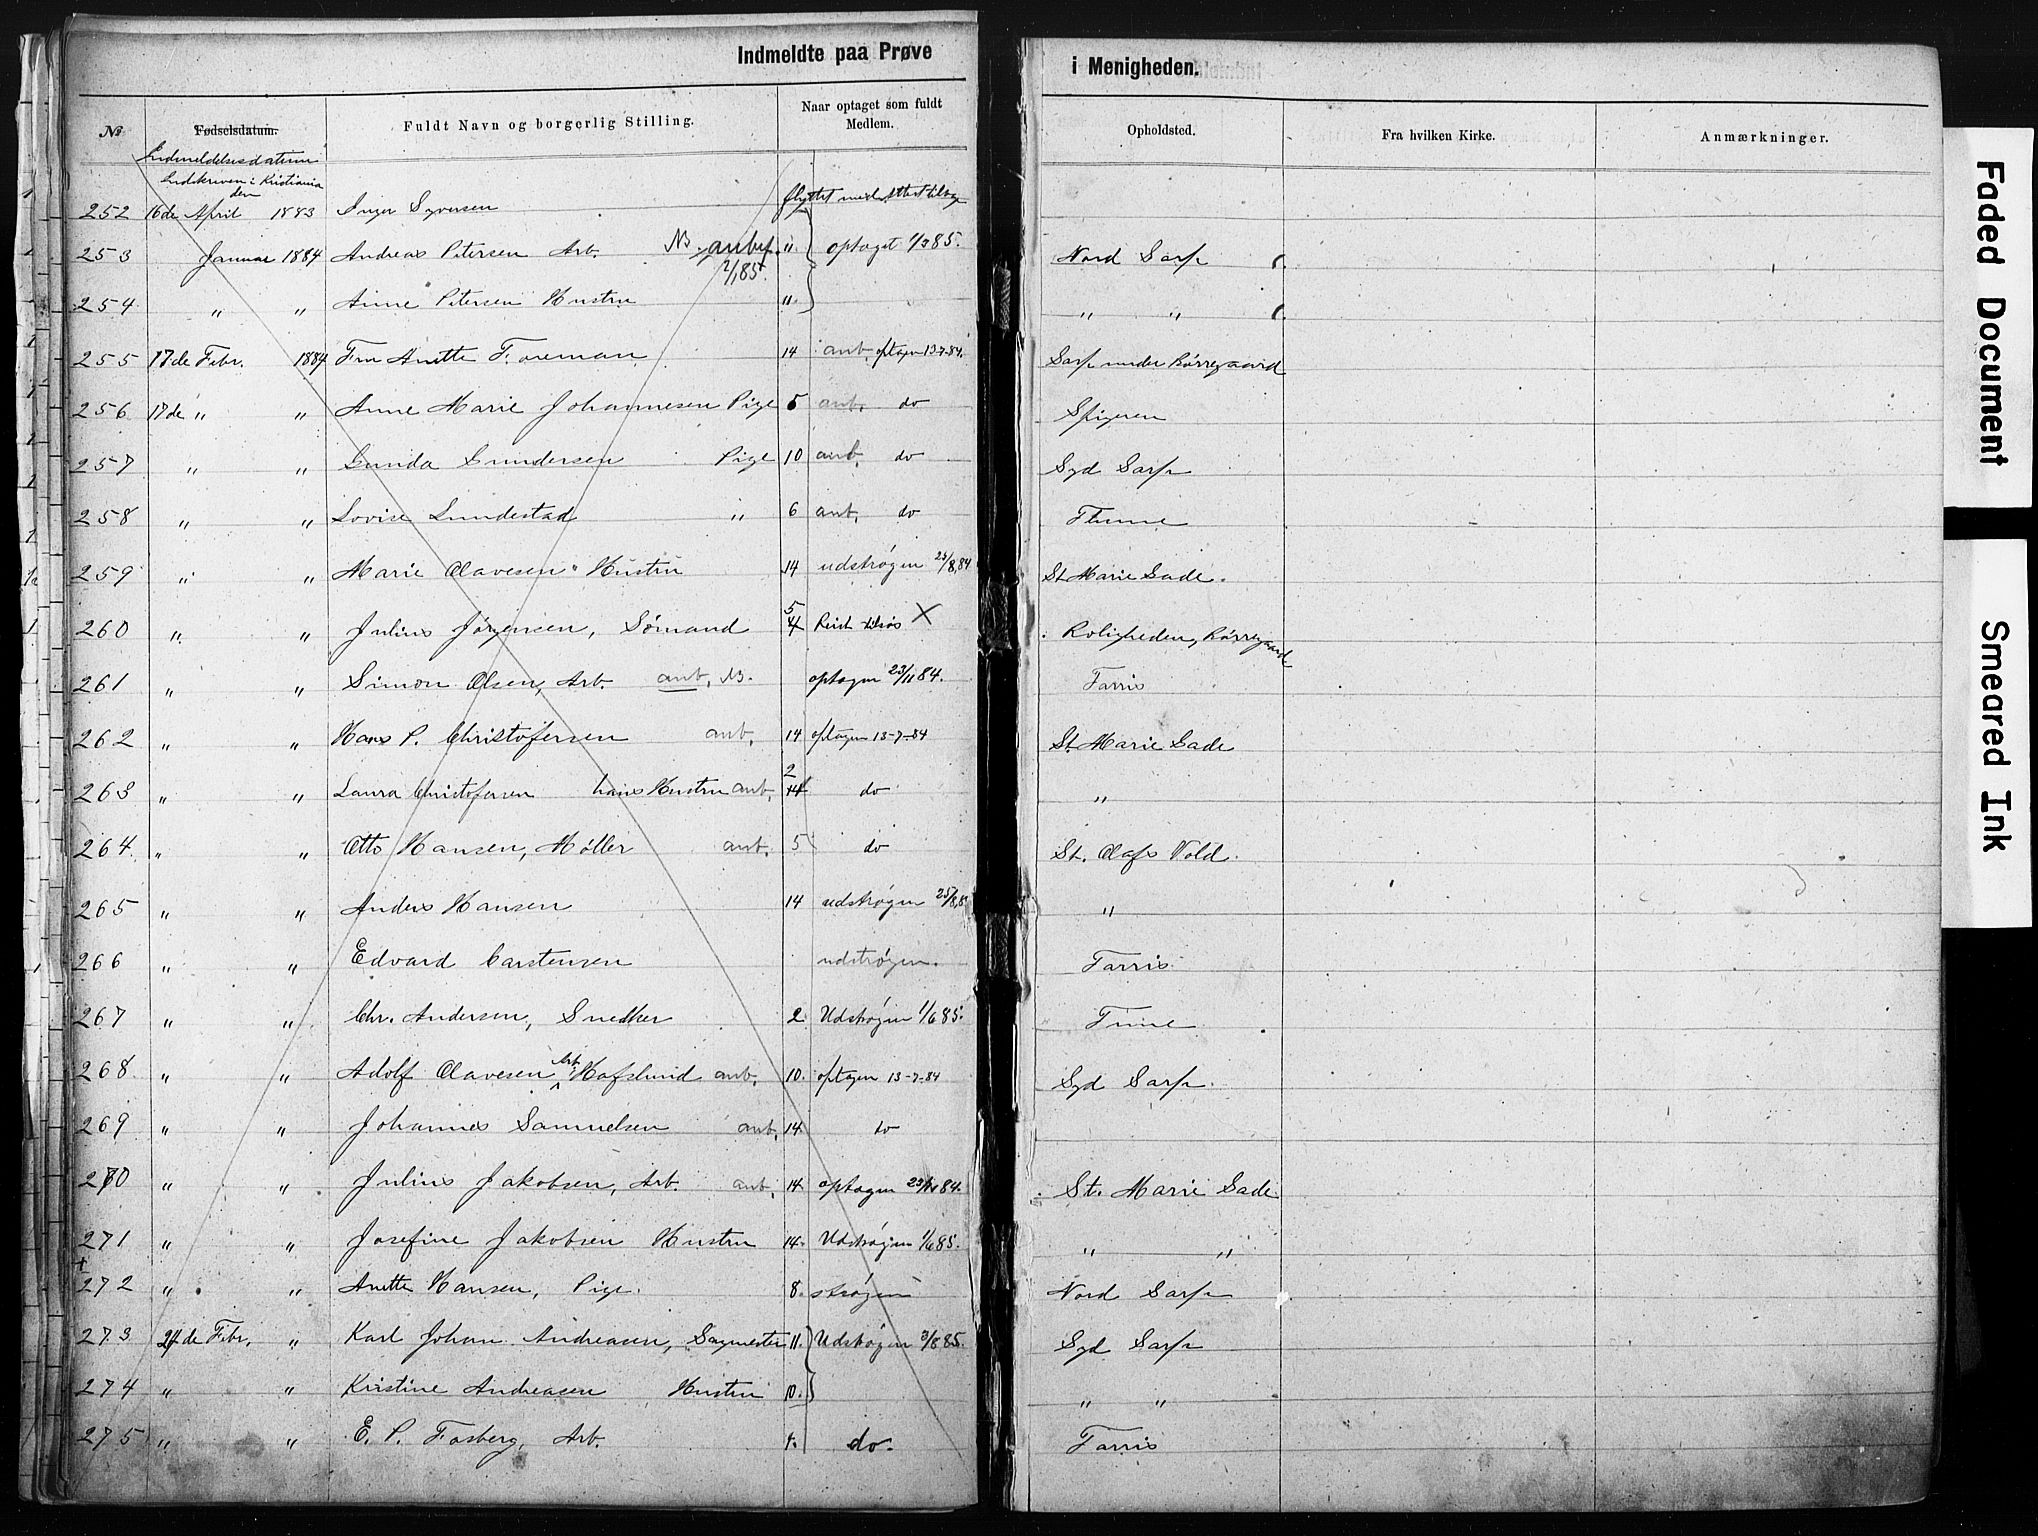 Indmeldte paa Prøve i Menigheden.
№ Fødselsdatum. Fuldt Navn og borgerlig Stilling. Naar optaget som fuldt Medlem. Opholdsted. Fra hvilken Kirke. Anmærkninger.
Indmeldelsesdatum
Indskreven i Kristiania den
252 16de April 1883 Inger Syversen flyttet med Attest
253 Januar 1884 Andreas Petersen Arb. NB. anbef. 2/1 85. " optaget 1/3 85. Nord Sarp
254 " " Anne Petersen Hustru " " "
255 17de Febr. 1884 Fru Anette Foreman 14 anb, optagen 13-7-84. Sarp under Borregaard
256 17de " " Anne Marie Johannesen Pige 5 anb, do Spigeren
257 " " Gunda Gundersen Pige 10 anb, do Syd Sarp
258 " " Lovise Lundestad " 6 anb, do Thune
259 " " Marie Olavesen Hustru 14 udstrøgen 25/8,84 St. Marie Gade.
260 " " Julius Jørgensen, Sømand 5 4 Reist tilsøs X Roligheden, Borregaard
261 " " Simon Olsen, Arb. anb, NB. optagen 23/11 84. Tarris
262 " " Hans P. Christofersen anb, 14 optagen 13-7-84 St. Marie Gade
263 " " Laura Christofersen hans Hustru anb, 2 14 do "
264 " " Otto Hansen, Møller anb, 5 do St. Olafs Vold.
265 " " Anders Hansen 14 udstrøgen 25/8,8 "
266 " " Edvard Carstensen udstrøgen. Tarris
267 " " Chr. Andersen, Snedker 2 Udstrøgen 1/6 85. Tune
268 " " Adolf Olavesen Arb. Hafslund anb, 10. optagen 13-7-84 Syd Sarp.
269 " " Johannes Samuelsen anb, 14. do
270 " " Julius Jakobsen, Arb. anb, 14. optagen 23/11 84. St. Marie Gade
271 " " Josefine Jakobsen Hustru 14. Udstrøgen 1/6 85. " "
+
272 " " Anette Hansen, Pige. 8. strøgen Nord Sarp
273 24de Febr, " Karl Johan Andreasen, Sagmester 11. Udstrøgen 3/8 85. Syd Sarp
274 " " Kristine Andreasen Hustru 10. " "
275 " " E. P. Fosberg, Arb. do. Tarris
Faded Document
Smeared Ink